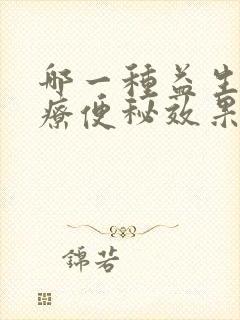 哪一種益生
療便秘效果
錦若